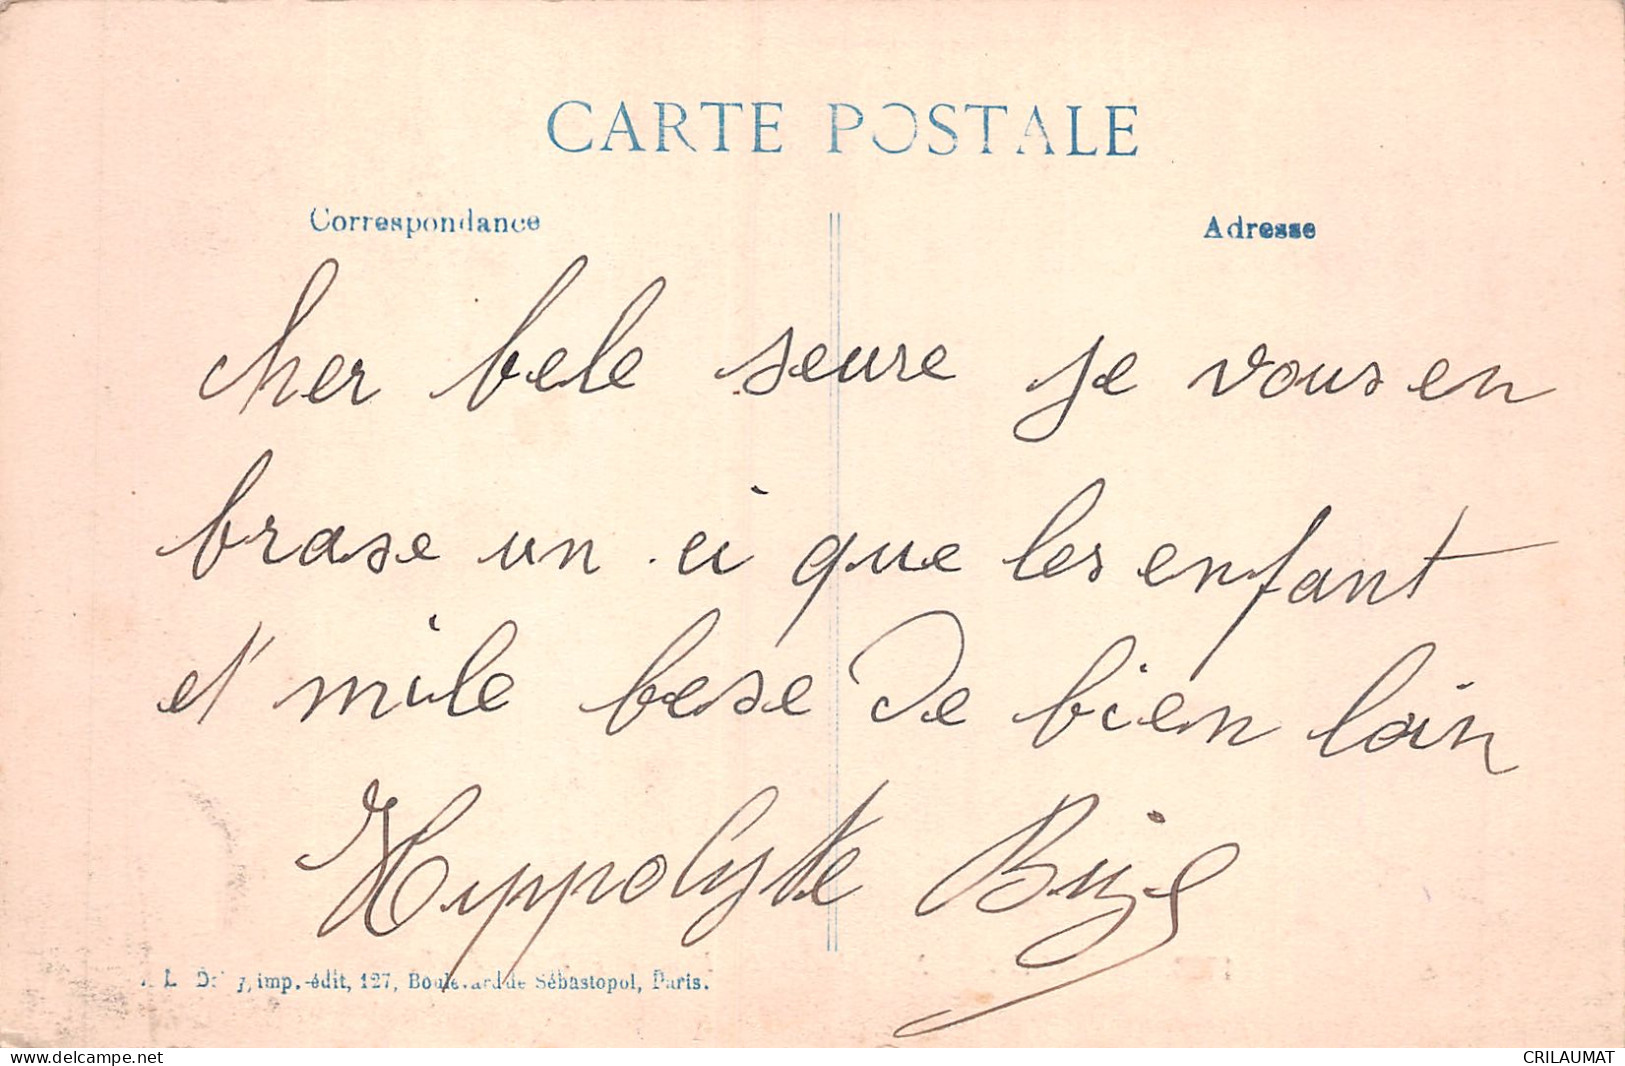 CARTE POSTALE
Correspondance
Adresse
cher bele seure je vous en
brase un ci que les enfant
et mile bese de bien loin
Hippolyte
imp.-édit, 127, Boulevard de Sébastopol, Paris.
CRILAUMAT